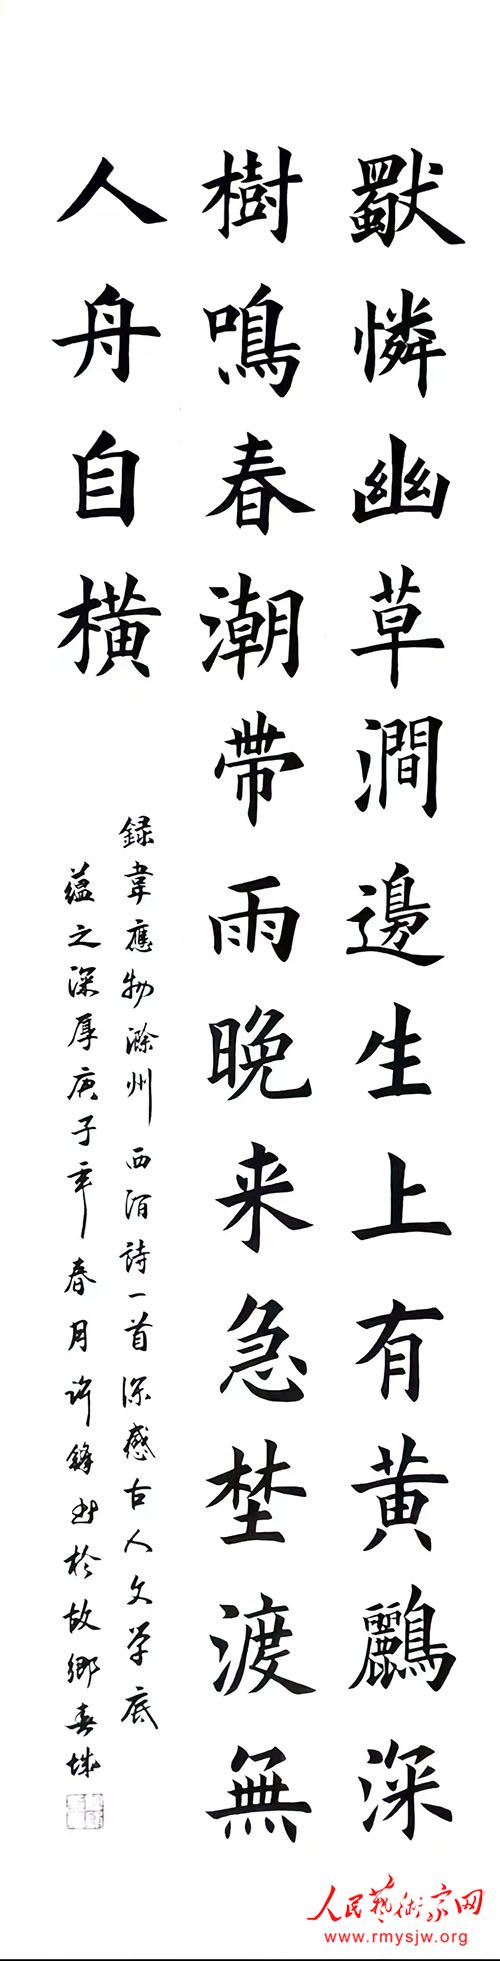 獨憐幽草澗邊生上有黄鸝深
樹鳴春潮帶雨晚来急埜渡無
人舟自横
録韋應物滁州西陌詩一首深感古人文学底
蕴之深厚庚子年春月许鋒书於故鄉春城
人民藝術家网
www.rmysjw.org